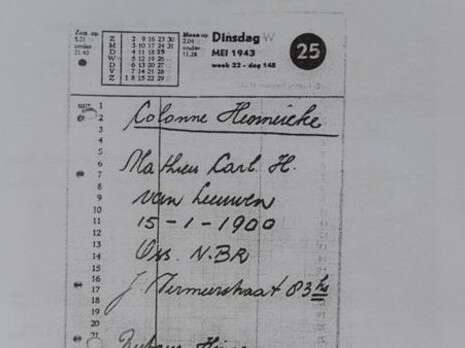 Zon op
5.31
onder
21.40
Z 2 9 16 23 30
M 3 10 17 24 31
D 4 11 18 25
W 5 12 19 26
D 6 13 20 27
V 7 14 21 28
Z 1 8 15 22 29
Maan op
2.04
onder
11.28
Dinsdag
MEI 1943
week 22 - dag 145
25
1
2 Colonne Henneicke
3
5
6
7 Mathieu Carl H.
8
9 van Leeuwen
10
11 15 - 1 - 1900
12
13
14 Oss. N.BR
15
16
17 J. Vermeerstraat 83 hs
18
19
20
21